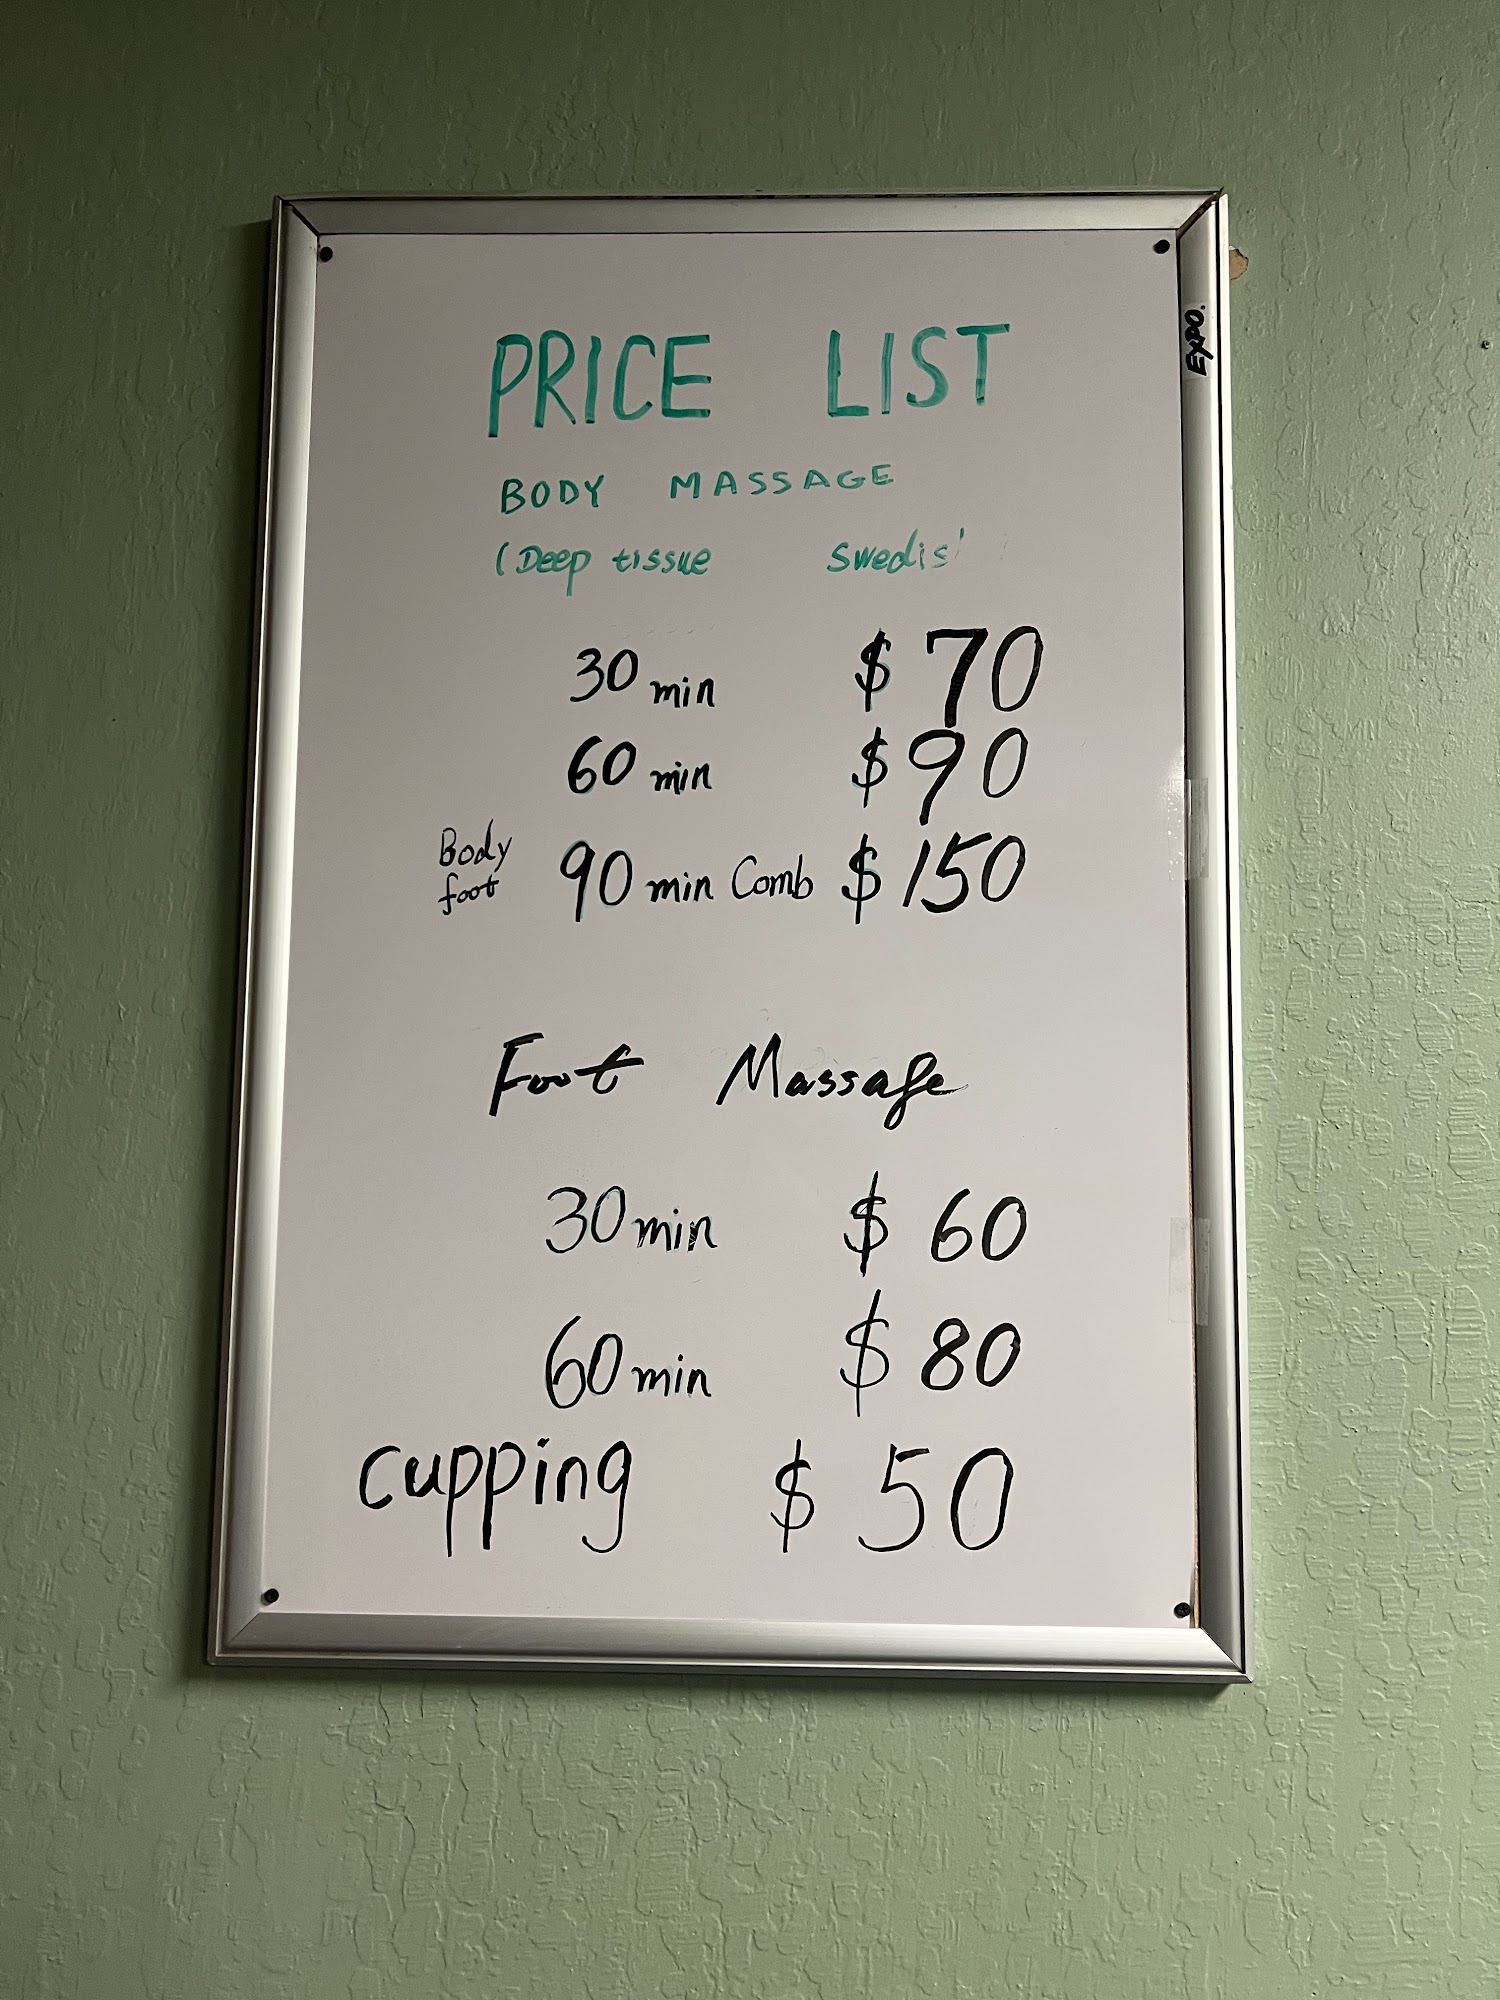 PRICE LIST
BODY MASSAGE
(Deep tissue Swedis
30 min $70
60 min $90
Body foot 90 min Comb $150
Foot Massage
30 min $60
60 min $80
cupping $50
EXPO